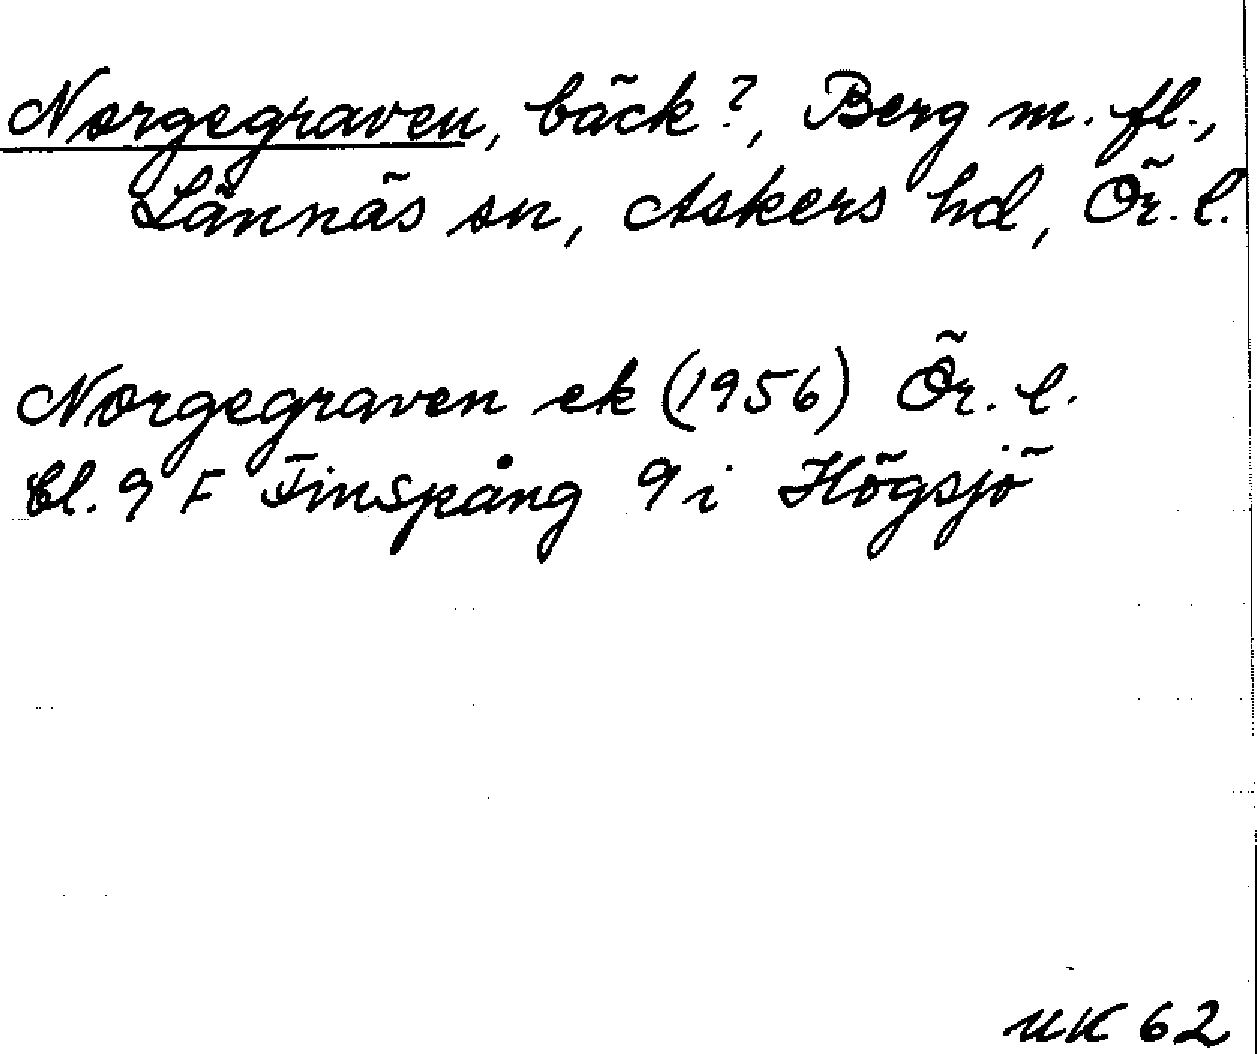 Norgegraven, bäck?, Berg m. fl.,
Lännäs sn, Askers hd, Ör. l.
Norgegraven ek (1956) Ör. l.
bl. 9 F Finspång 9 i Högsjö
UK 62